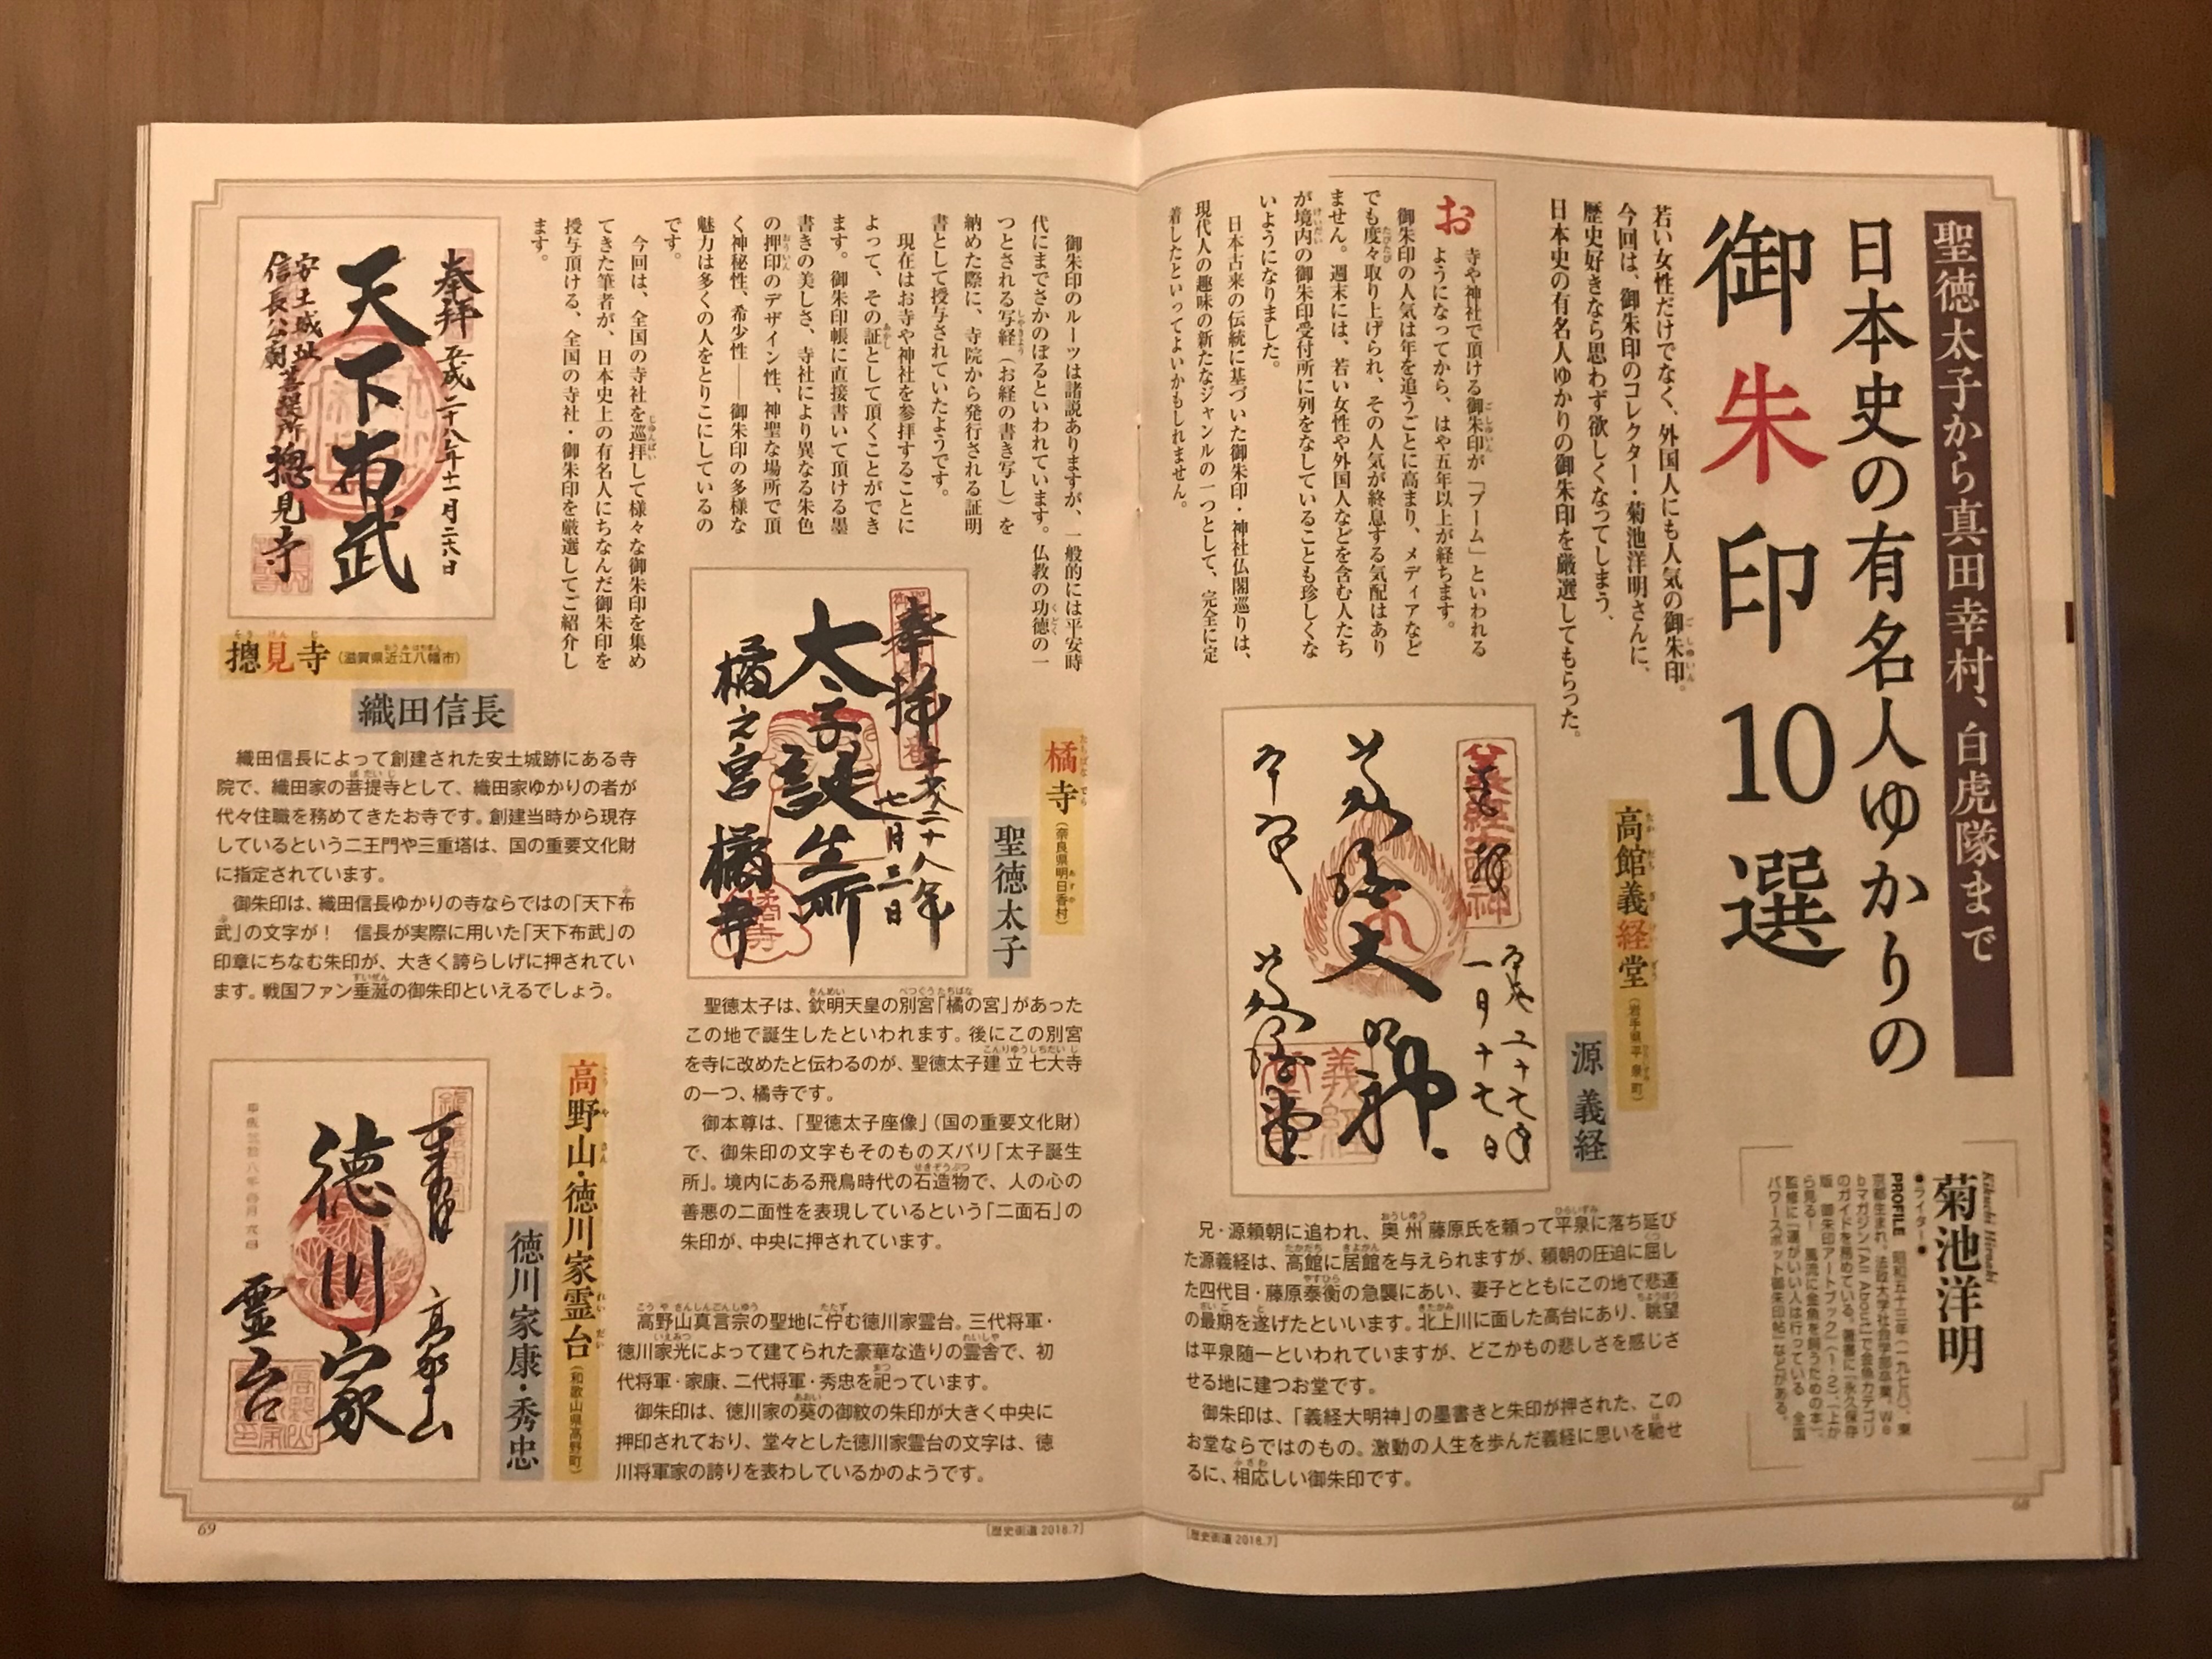 聖徳太子から真田幸村、白虎隊まで
日本史の有名人ゆかりの
御朱印10選
若い女性だけでなく、外国人にも人気の御朱印。
今回は、御朱印のコレクター・菊池洋明さんに、
歴史好きなら思わず欲しくなってしまう、
日本史の有名人ゆかりの御朱印を厳選してもらった。
Kikuchi Hiroaki
菊池洋明
●ライター●
PROFILE 昭和五十三年(一九七八)、東
京都生まれ。法政大学社会学部卒業。We
bマガジン「All About」で金魚カテゴリ
のガイドを務めている。著書に『永久保存
版 御朱印アートブック』(1・2)、『上か
ら見る! 風流に金魚を飼うための本』、
監修に『運がいい人は行っている 全国
パワースポット御朱印帖』などがある。
お寺や神社で頂ける御朱印が「ブーム」といわれる
ようになってから、はや五年以上が経ちます。
御朱印の人気は年を追うごとに高まり、メディアなど
でも度々取り上げられ、その人気が終息する気配はあり
ません。週末には、若い女性や外国人などを含む人たち
が境内の御朱印受付所に列をなしていることも珍しくな
いようになりました。
日本古来の伝統に基づいた御朱印・神社仏閣巡りは、
現代人の趣味の新たなジャンルの一つとして、完全に定
着したといってよいかもしれません。
高館義経堂(岩手県平泉町)
源 義経
義経大明神
一月十七日
兄・源頼朝に追われ、奥州藤原氏を頼って平泉に落ち延び
た源義経は、高館に居館を与えられますが、頼朝の圧迫に屈し
た四代目・藤原泰衡の急襲にあい、妻子とともにこの地で悲運
の最期を遂げたといいます。北上川に面した高台にあり、眺望
は平泉随一といわれていますが、どこかもの悲しさを感じさ
せる地に建つお堂です。
御朱印は、「義経大明神」の墨書きと朱印が押された、この
お堂ならではのもの。激動の人生を歩んだ義経に思いを馳せ
るに、相応しい御朱印です。
68
[歴史街道 2018.7]
御朱印のルーツは諸説ありますが、一般的には平安時
代にまでさかのぼるといわれています。仏教の功徳の一
つとされる写経(お経の書き写し)を
納めた際に、寺院から発行される証明
書として授与されていたようです。
現在はお寺や神社を参拝することに
よって、その証として頂くことができ
ます。御朱印帳に直接書いて頂ける墨
書きの美しさ、寺社により異なる朱色
の押印のデザイン性、神聖な場所で頂
く神秘性、希少性――御朱印の多様な
魅力は多くの人をとりこにしているの
です。
今回は、全国の寺社を巡拝して様々な御朱印を集め
てきた筆者が、日本史上の有名人にちなんだ御朱印を
授与頂ける、全国の寺社・御朱印を厳選してご紹介し
ます。
橘寺(奈良県明日香村)
聖徳太子
奉拝
平成二十八年
七月三日
太子誕生所
橘之宮 橘寺
聖徳太子は、欽明天皇の別宮「橘の宮」があった
この地で誕生したといわれます。後にこの別宮
を寺に改めたと伝わるのが、聖徳太子建立七大寺
の一つ、橘寺です。
御本尊は、「聖徳太子座像」(国の重要文化財)
で、御朱印の文字もそのものズバリ「太子誕生
所」。境内にある飛鳥時代の石造物で、人の心の
善悪の二面性を表現しているという「二面石」の
朱印が、中央に押されています。
奉拝 平成二十八年十一月二六日
天下布武
安土城址
信長公廟菩提所 摠見寺
摠見寺(滋賀県近江八幡市)
織田信長
織田信長によって創建された安土城跡にある寺
院で、織田家の菩提寺として、織田家ゆかりの者が
代々住職を務めてきたお寺です。創建当時から現存
しているという二王門や三重塔は、国の重要文化財
に指定されています。
御朱印は、織田信長ゆかりの寺ならではの「天下布
武」の文字が! 信長が実際に用いた「天下布武」の
印章にちなむ朱印が、大きく誇らしげに押されてい
ます。戦国ファン垂涎の御朱印といえるでしょう。
高野山・徳川家霊台(和歌山県高野町)
徳川家康・秀忠
奉拝 高野山
徳川家
霊台
高野山真言宗の聖地に佇む徳川家霊台。三代将軍・
徳川家光によって建てられた豪華な造りの霊舎で、初
代将軍・家康、二代将軍・秀忠を祀っています。
御朱印は、徳川家の葵の御紋の朱印が大きく中央に
押印されており、堂々とした徳川家霊台の文字は、徳
川将軍家の誇りを表わしているかのようです。
69
[歴史街道 2018.7]